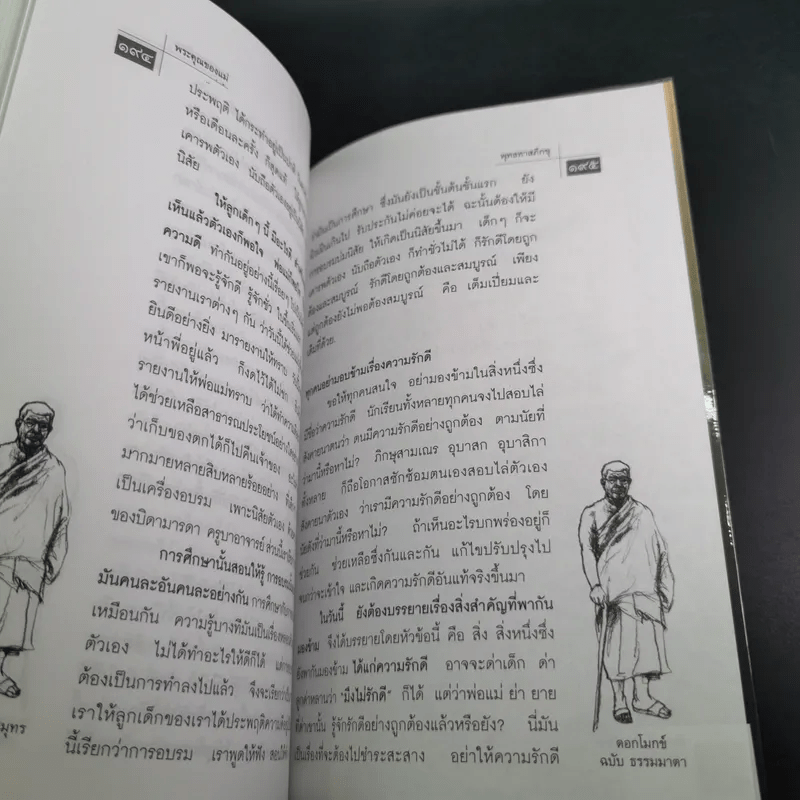 ๑๙๔
พระคุณของแม่
ประพฤติ ได้กระทำอยู่เป็น
หรือเดือนละครั้ง ก็สุดแท้
เคารพตัวเอง นับถือตัวเองอยู่เป็น
นิสัย
ให้ลูกเด็กๆ นี้ มีอะไรที่
เห็นแล้วตัวเองก็พอใจ พ่อแม่
ความดี ทำกันอยู่อย่างนี้เรื่อยๆ
เขาก็พอจะรู้จักดี รู้จักชั่ว ในขั้น
รายงานเราต่างๆ กัน ว่าวันนี้ได้
ยินดีอย่างยิ่ง มารายงานให้ทราบ
หน้าพี่อยู่แล้ว ก็งดไว้ได้ไม่
รายงานให้พ่อแม่ทราบ ว่าได้ทำ
ได้ช่วยเหลือสาธารณประโยชน์อย่าง
ว่าเก็บของตกได้ก็ไปคืนเจ้าของ
มากมายหลายสิบหลายร้อยอย่าง ที่
เป็นเครื่องอบรม เพาะนิสัยตัวเอง
ของบิดามารดา ครูบาอาจารย์ ส่วนนี้
การศึกษานั้นสอนให้รู้ การอบรม
มันคนละอันคนละอย่างกัน การศึกษา
เหมือนกัน ความรู้บางทีมันเป็นเรื่อง
ตัวเอง ไม่ได้ทำอะไรให้ดีก็ได้ แต่
ต้องเป็นการทำลงไปแล้ว จึงจะเรียกว่า
เราให้ลูกเด็กของเราได้ประพฤติความดี
นี้เรียกว่าการอบรม เราพูดให้ฟัง สอน
พุทธทาสภิกขุ
๑๙๕
มันเป็นการศึกษา ซึ่งมันยังเป็นขั้นต้นขั้นแรก ยัง
เกินไป รับประกันไม่ค่อยจะได้ ฉะนั้นต้องให้มี
การอบรมบ่มนิสัย ให้เกิดเป็นนิสัยขึ้นมา เด็กๆ ก็จะ
เคารพตัวเอง นับถือตัวเอง ก็ทำชั่วไม่ได้ ก็รักดีโดยถูก
ต้องและสมบูรณ์ รักดีโดยถูกต้องและสมบูรณ์ เพียง
แต่ถูกต้องยังไม่พอต้องสมบูรณ์ คือ เต็มเปี่ยมและ
เต็มที่ด้วย.
ทุกคนอย่ามอบข้ามเรื่องความรักดี
ขอให้ทุกคนสนใจ อย่ามองข้ามในสิ่งหนึ่งซึ่ง
มีชื่อว่าความรักดี นักเรียนทั้งหลายทุกคนจงไปสอบไล่
สังคายนาตนว่า ตนมีความรักดีอย่างถูกต้อง ตามนัยที่
ว่ามานี้หรือหาไม่? ภิกษุสามเณร อุบาสก อุบาสิกา
ทั้งหลาย ก็ถือโอกาสซักซ้อมตนเองสอบไล่ตัวเอง
สังคายนาตัวเอง ว่าเรามีความรักดีอย่างถูกต้อง โดย
นัยดังที่ว่ามานี้หรือหาไม่? ถ้าเห็นอะไรบกพร่องอยู่ก็
ช่วยกัน ช่วยเหลือซึ่งกันและกัน แก้ไขปรับปรุงไป
จนกว่าจะเข้าใจ และเกิดความรักดีอันแท้จริงขึ้นมา
ในวันนี้ ยังต้องบรรยายเรื่องสิ่งสำคัญที่พากัน
มองข้าม จึงได้บรรยายโดยหัวข้อนี้ คือ สิ่ง สิ่งหนึ่งซึ่ง
ยังพากันมองข้าม ได้แก่ความรักดี อาจจะด่าเด็ก ด่า
ลูกด่าหลานว่า "มึงไม่รักดี" ก็ได้ แต่ว่าพ่อแม่ ย่า ยาย
ที่ด่าเขานั้น รู้จักรักดีอย่างถูกต้องแล้วหรือยัง? นี่มัน
เป็นเรื่องที่จะต้องไปชำระสะสาง อย่าให้ความรักดี
มุทร
ดอกโมกข์
ฉบับ ธรรมมาตา